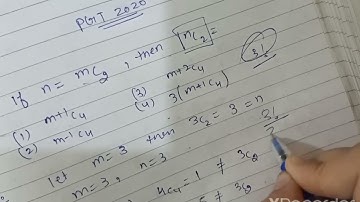 PGT 2020
If n = mC2, then nC2 =
(1) m+1C4 (3) m+2C4
(2) m-1C4 (4) 3(m+1C4)
3!
let m = 3 then 3C2 = 3 = n
m = 3, n = 3
3!
4C4 = 1 ≠ 3C2
≠ 3C2
XRecorder